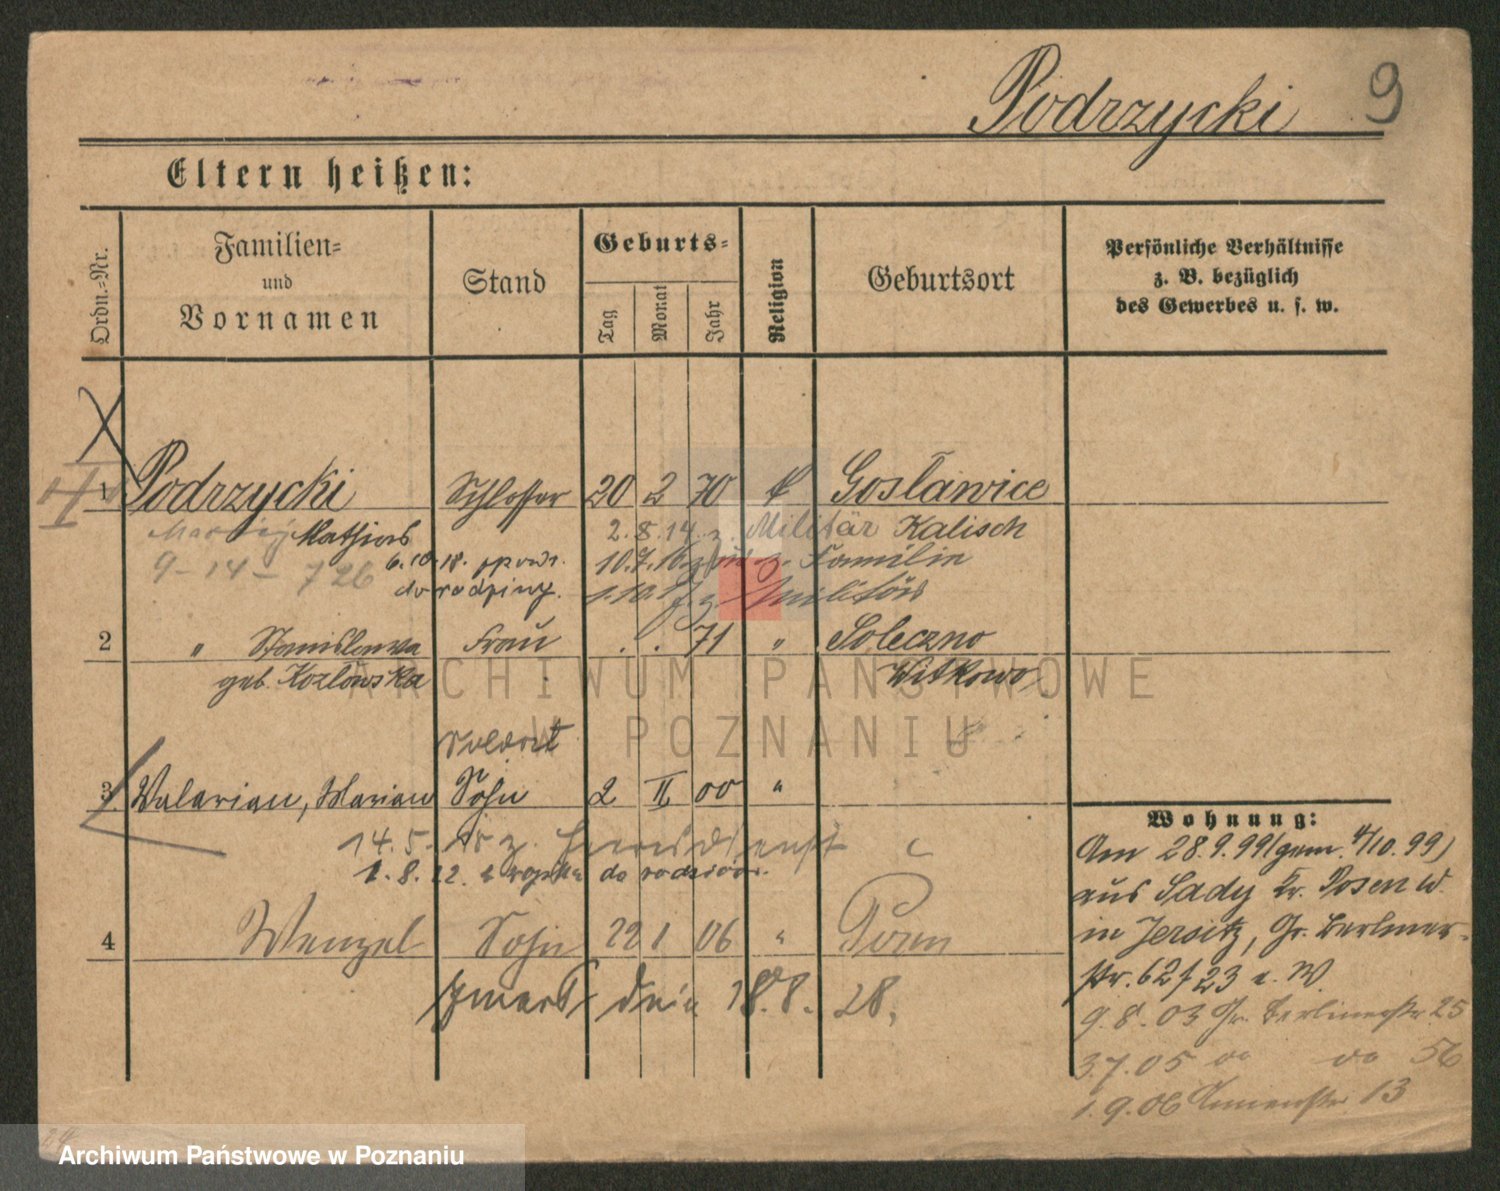 Podrzycki 9
Eltern heißen:
Ordn.-Nr.
Familien=
und
Vornamen
Stand
Geburts=
Tag
Monat
Jahr
Religion
Geburtsort
Persönliche Verhältnisse
z. B. bezüglich
des Gewerbes u. s. w.
1 Podrzycki Schlosser 20 2 70 Gosławice
Maciej Mathias 2.8.14 z. Militär Kalisch
9-14-726 6.10.18. 10.7.16 z. Familie
do rodziny. 1.10. z. Militär
2 " Stanislawa Frau . . 71 " Soleczno
geb. Kozlowska Witkowo
ARCHIWUM PAŃSTWOWE
W POZNANIU
Soldat
3 Walarian, Marian Sohn 2 II 00 "
14.5. 18 z. Heeresdienst
1.8.22. z wojska do rodziców.
4 Wenzel Sohn 22 1 06 " Posen
zmarł dnia 18.8.28,
Wohnung:
Am 28.9.99 (gem. 4/10.99)
aus Sady Kr. Posen W.
in Jersitz, Gr. Berliner-
str. 62 b/23 e. W.
9.8.03 Gr. Berlinerstr 25
3.7.05 do do 56
1.9.06 13
Archiwum Państwowe w Poznaniu